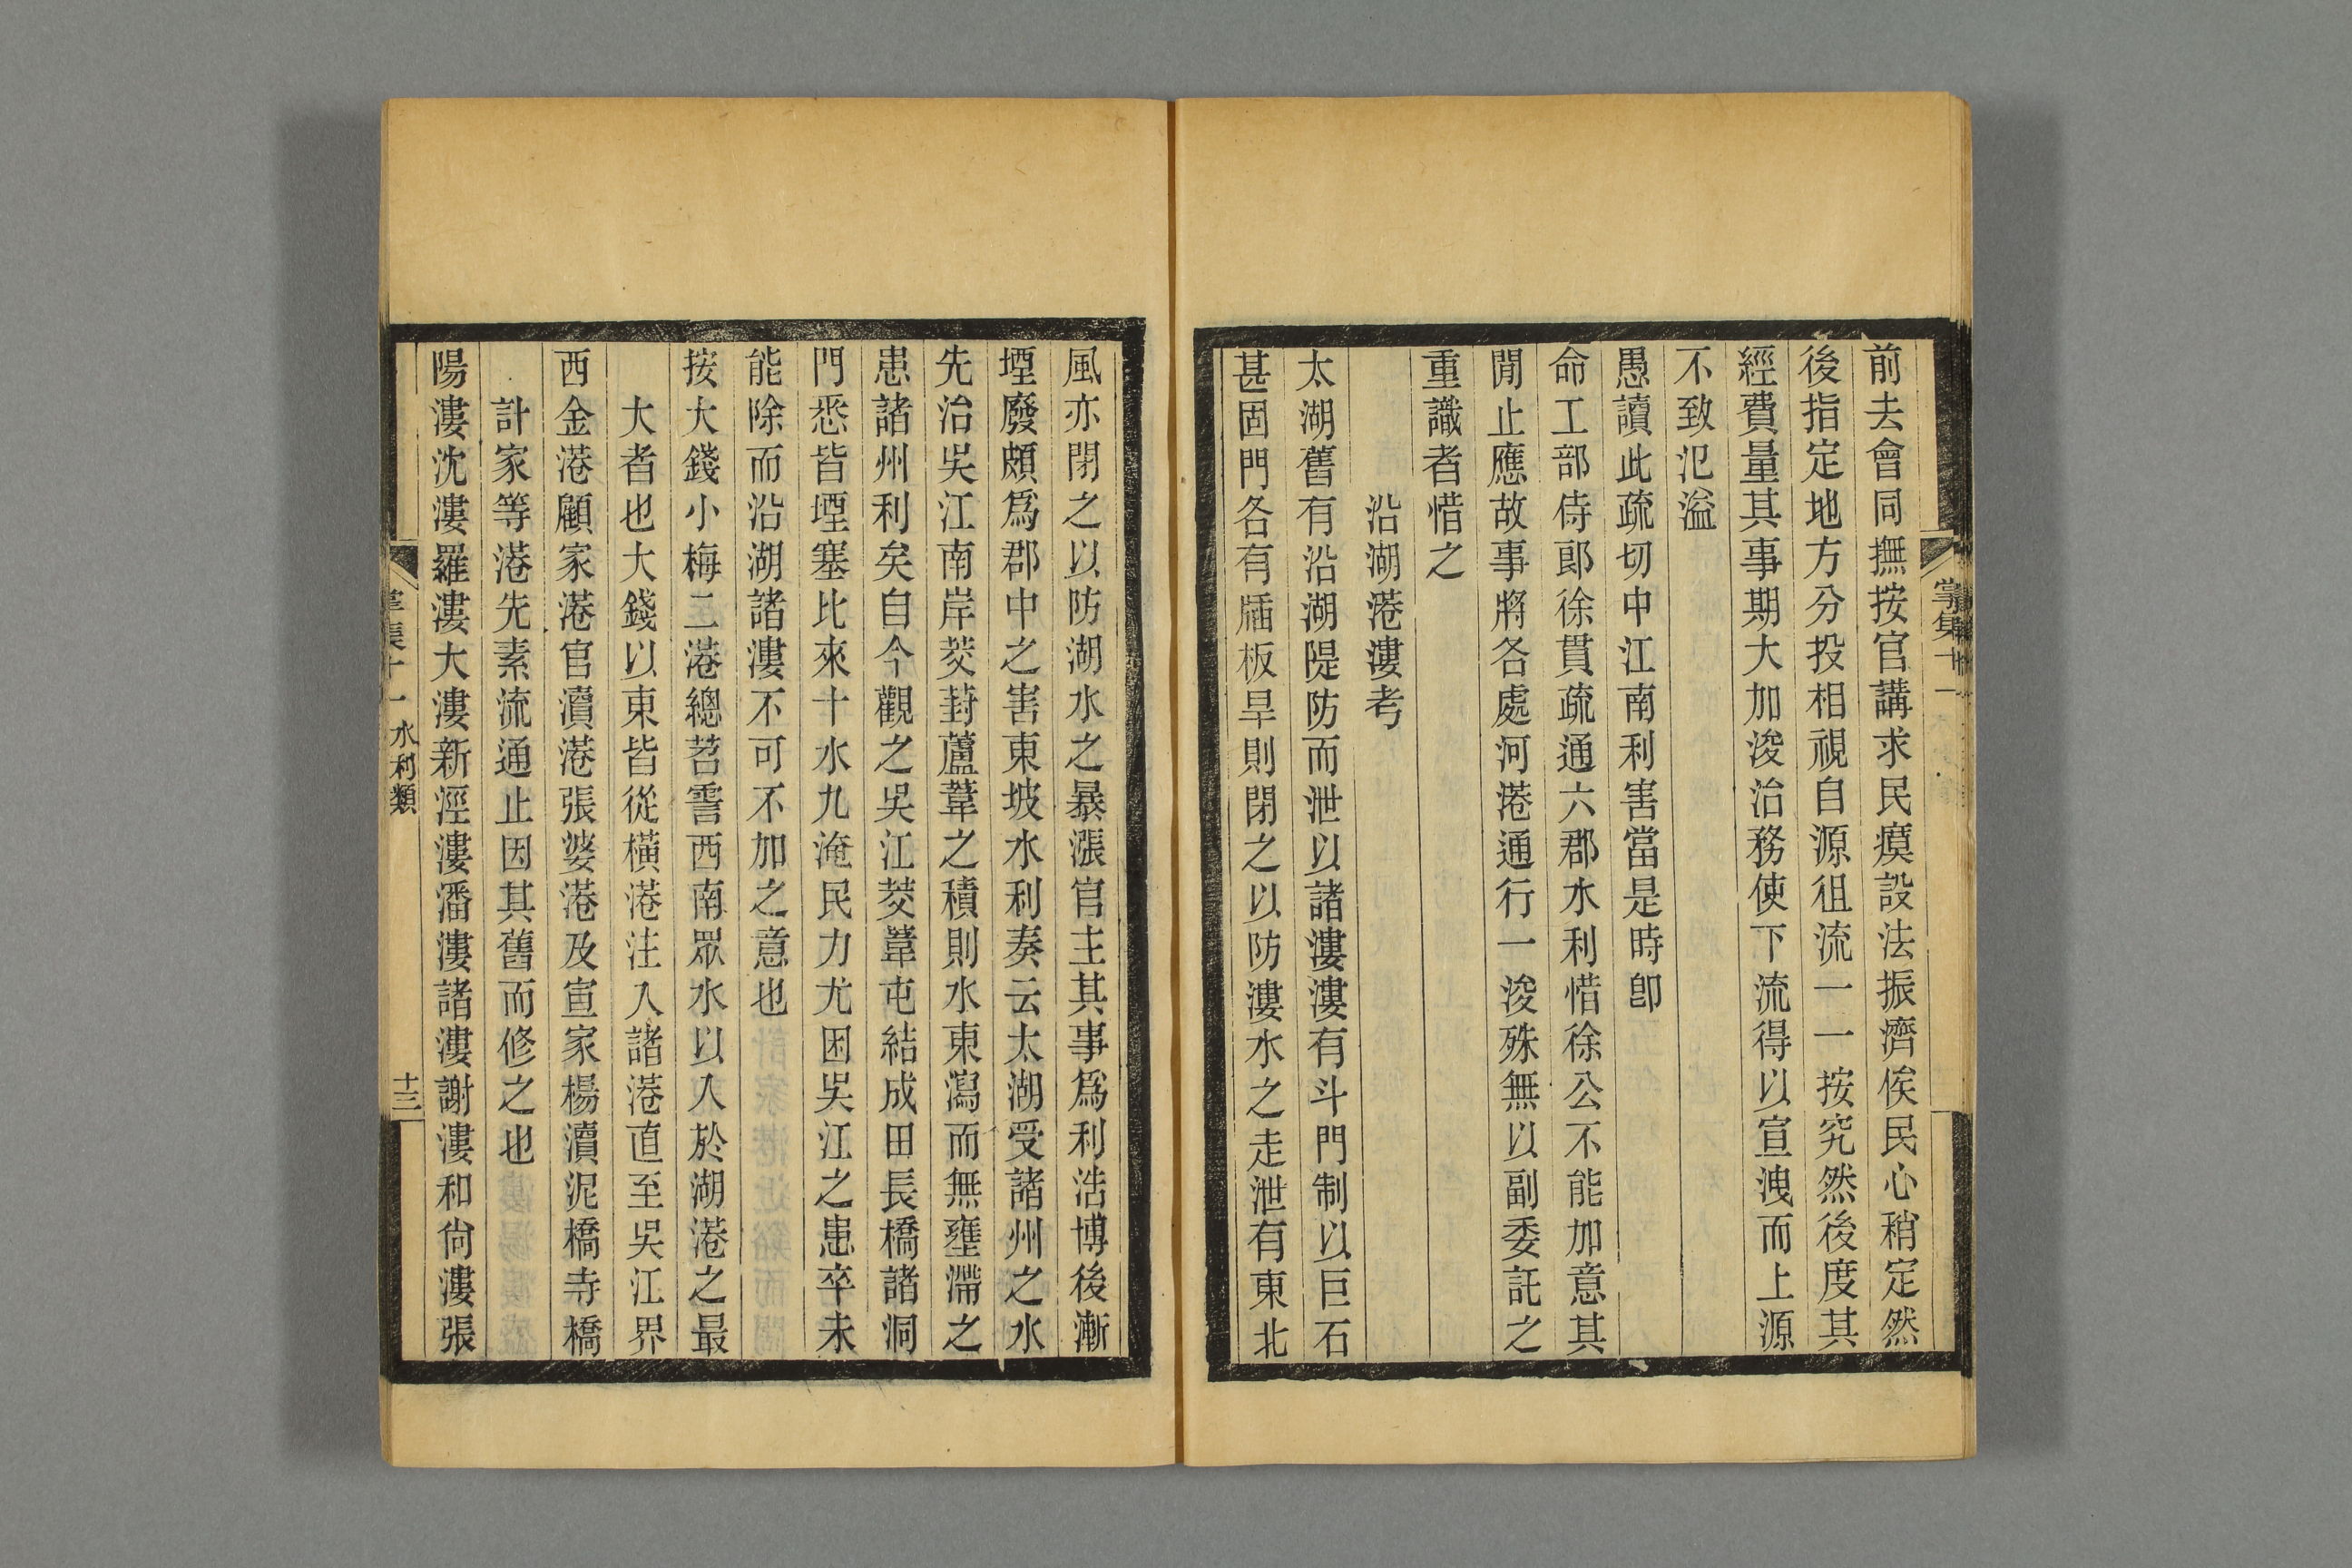 前去會同撫按官講求民瘼設法振濟俟民心稍定然
後指定地方分投相視自源徂流一一按究然後度其
經費量其事期大加浚治務使下流得以宣洩而上源
不致氾溢
愚讀此疏切中江南利害當是時卽
命工部侍郎徐貫疏通六郡水利惜徐公不能加意其
閒止應故事將各處河港通行一浚殊無以副委託之
重識者惜之
沿湖港漊考
太湖舊有沿湖隄防而泄以諸漊漊有斗門制以巨石
甚固門各有牐板旱則閉之以防漊水之走泄有東北
風亦閉之以防湖水之暴漲官主其事爲利浩博後漸
堙廢頗爲郡中之害東坡水利奏云太湖受諸州之水
先治吳江南岸茭葑蘆葦之積則水東瀉而無壅滯之
患諸州利矣自今觀之吳江茭葦屯結成田長橋諸洞
門悉皆堙塞比來十水九淹民力尤困吳江之患卒未
能除而沿湖諸漊不可不加之意也
按大錢小梅二港總苕霅西南眾水以入於湖港之最
大者也大錢以東皆從橫港注入諸港直至吳江界
西金港顧家港官瀆港張婆港及宣家楊瀆泥橋寺橋
計家等港先素流通止因其舊而修之也
陽漊沈漊羅漊大漊新涇漊潘漊諸漊謝漊和尙漊張
水利類
十三